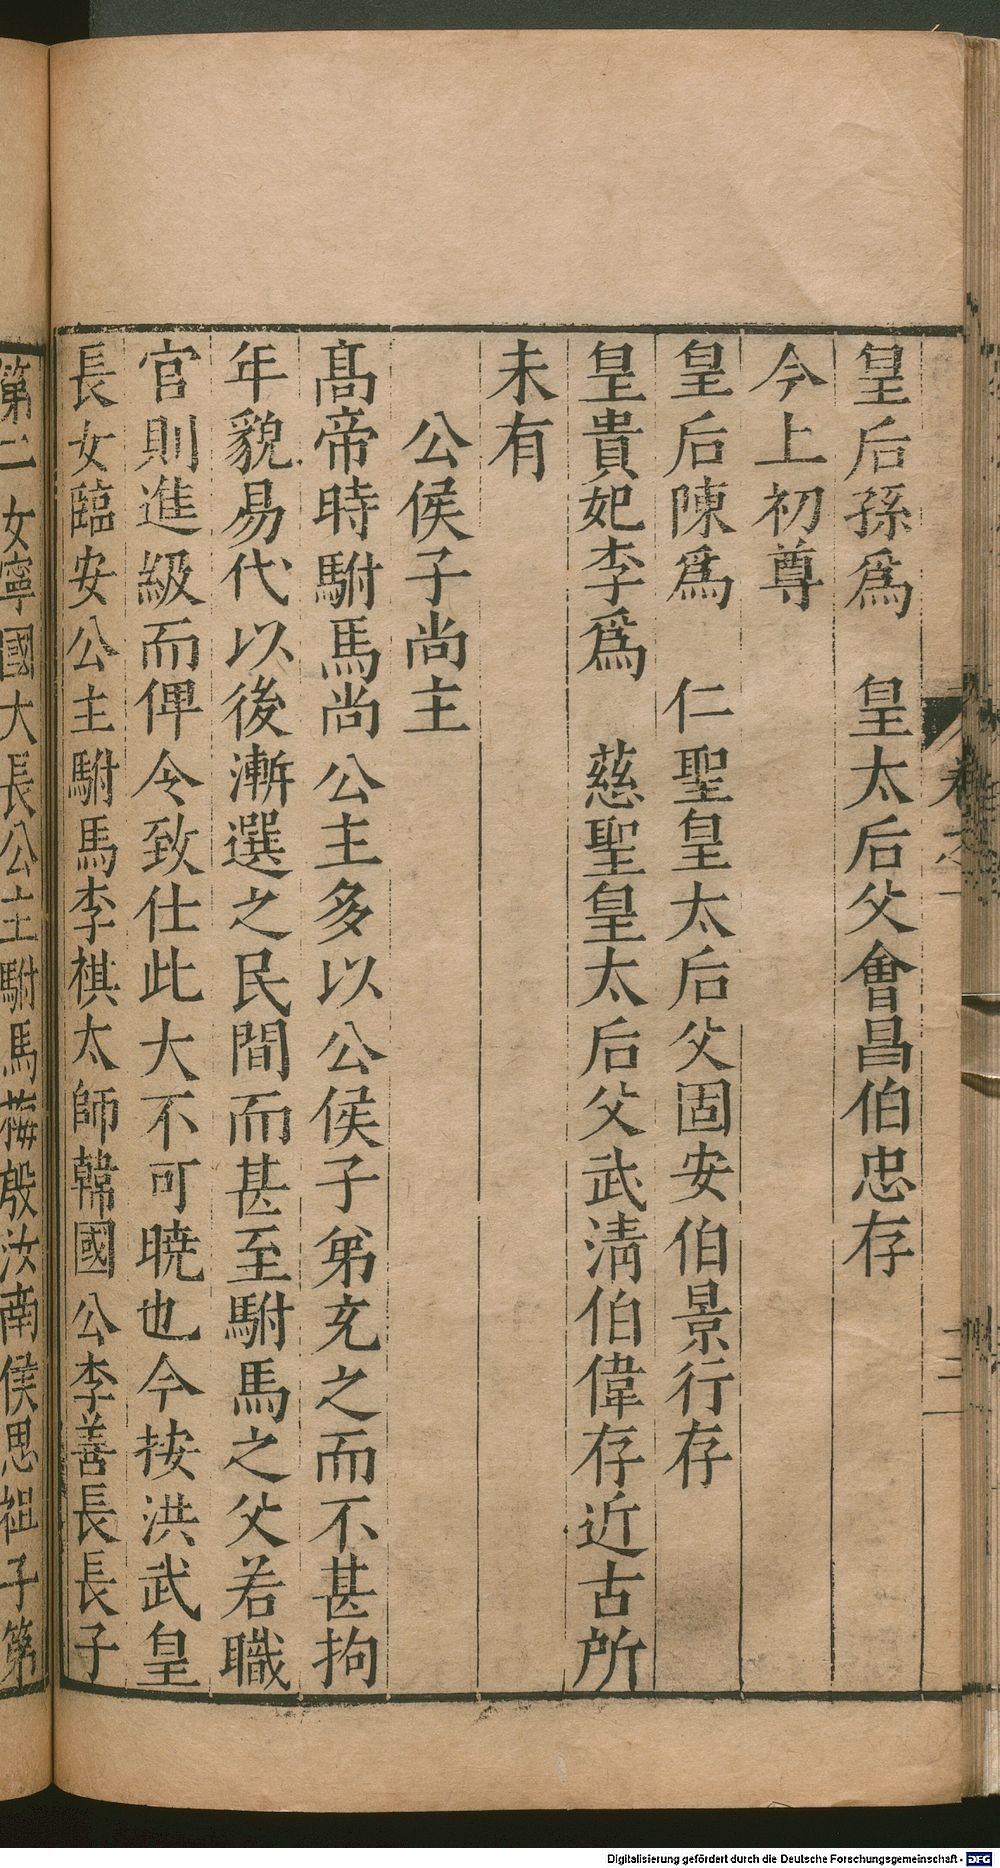 皇后孫爲　皇太后父會昌伯忠存
今上初尊
皇后陳爲　仁聖皇太后父固安伯景行存
皇貴妃李爲　慈聖皇太后父武淸伯偉存近古所
未有
公侯子尚主
髙帝時駙馬尚公主多以公侯子弟充之而不甚拘
年貌易代以後漸選之民間而甚至駙馬之父若職
官則進級而俾令致仕此大不可暁也今按洪武皇
長女臨安公主駙馬李祺太師韓國公李善長長子
第二女寧國大長公主駙馬梅殷汝南侯思祖子第
卷之一
Digitalisierung gefördert durch die Deutsche Forschungsgemeinschaft - DFG